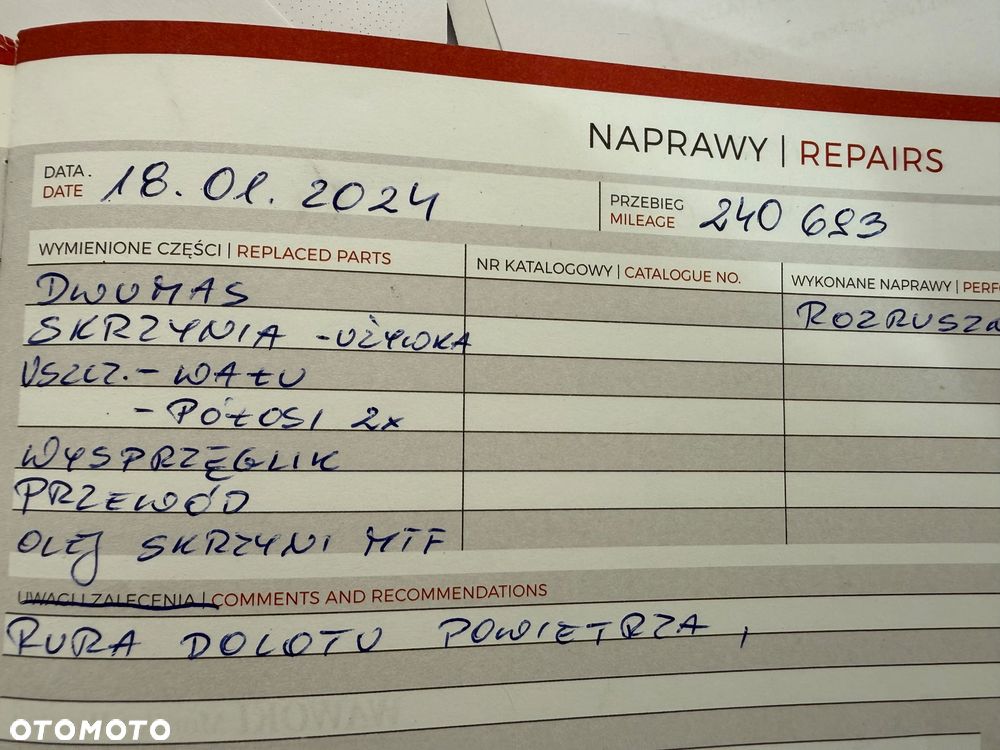 NAPRAWY | REPAIRS
DATA.
DATE
18.01.2024
PRZEBIEG
MILEAGE
240 693
WYMIENIONE CZĘŚCI | REPLACED PARTS
NR KATALOGOWY | CATALOGUE NO.
WYKONANE NAPRAWY | PERFO
DWUMAS
ROZRUSZN
SKRZYNIA - UŻYWKA
USZCZ. - WAŁU
- PÓŁOSI 2x
WYSPRZĘGLIK
PRZEWÓD
OLEJ SKRZYNI MTF
UWAGI I ZALECENIA | COMMENTS AND RECOMMENDATIONS
RURA DOLOTU POWIETRZA,
OTOMOTO